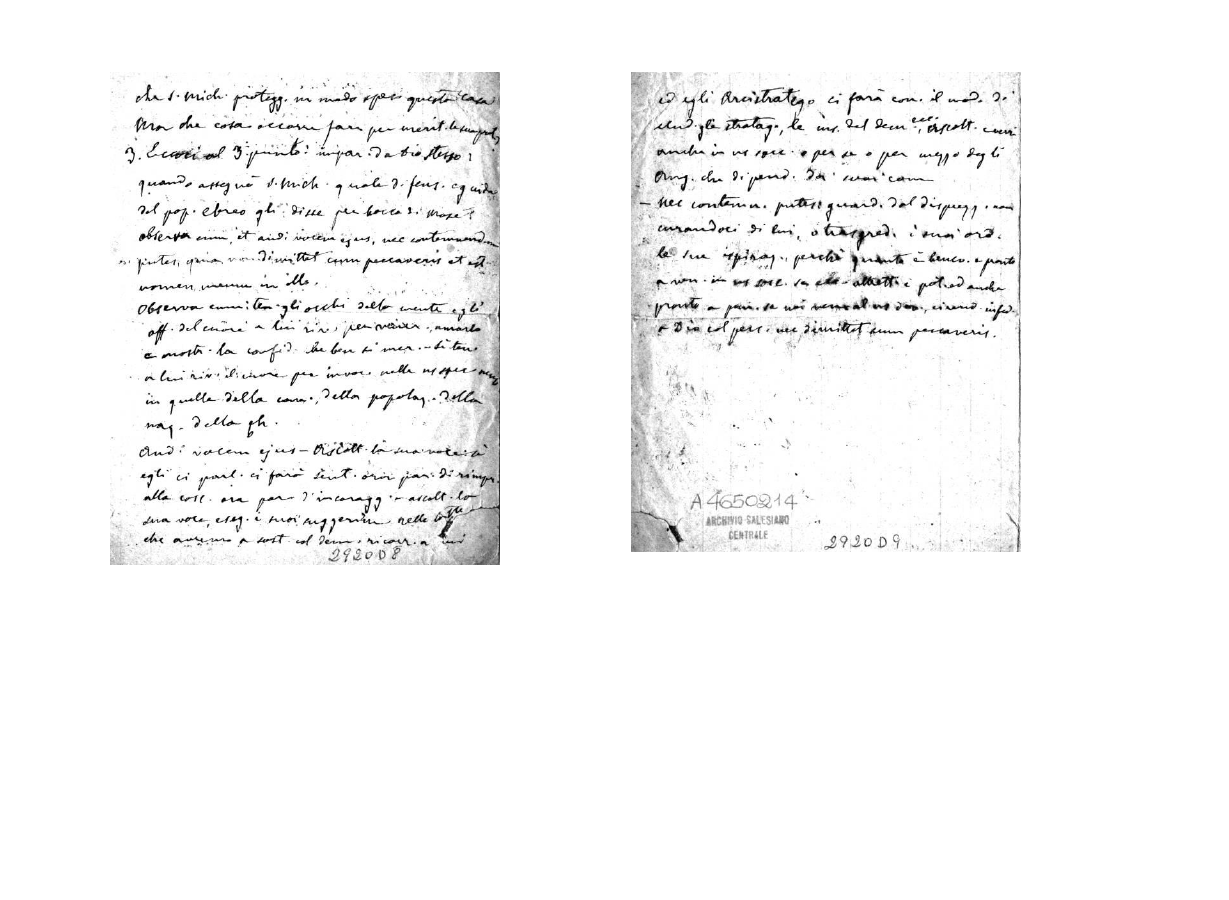 che S. Mich. protegg. in modo spec. questa casa
Ma che cosa occorre fare per merit. la sua prot.
3. Eccoci al 3 punto: impar. da Dio stesso:
quando assegnò S. Mich. quale difens. e guida
del pop. ebreo gli disse per bocca di Mosè:
observa eum, et audi vocem ejus, nec contemnend.
putes, quia non dimittet cum peccaveris et est
nomen meum in illo.
Observa eum, ten. gli occhi della mente e gli
aff. del cuore a lui riv. per vener., amarlo
e mostr. la confid. che ben si mer. - si ten.
a lui riv. il cuore per invoc. nelle ns spec.
in quelle della com., della popolaz. della
naz. della ch.
Audi vocem ejus - Ascolt. la sua voce: sì
egli ci parl. ci farà sent. ora par. di rimpr.
alla cosc. ora par. d'incoragg. - ascolt. la
sua voce, eseg. i suoi suggerim. nelle lotte
che avremo a sost. col dem. ricorr. a lui
2920 D 8
ed egli Arcistratego ci farà con. il modo di
elud. gli stratag., le ins. del dem. ecc. Ascolt.
anche in ns socc. o per se o per mezzo degli
Ang. che dipend. dai suoi cenni
- Nec contemn. putes: guard. dal disprezz. non
curandoci di lui, o trasgred. i suoi ord.
le sue ispiraz., perchè quanto è benev. e pronto
a ven. in ns socc. altrett. è poi ed anche
pronto a pun. se noi al ns dov., essend. infed.
a Dio col pecc. nec dimittet cum peccaveris.
A 4650214
ARCHIVIO SALESIANO
CENTRALE
2920 D 9